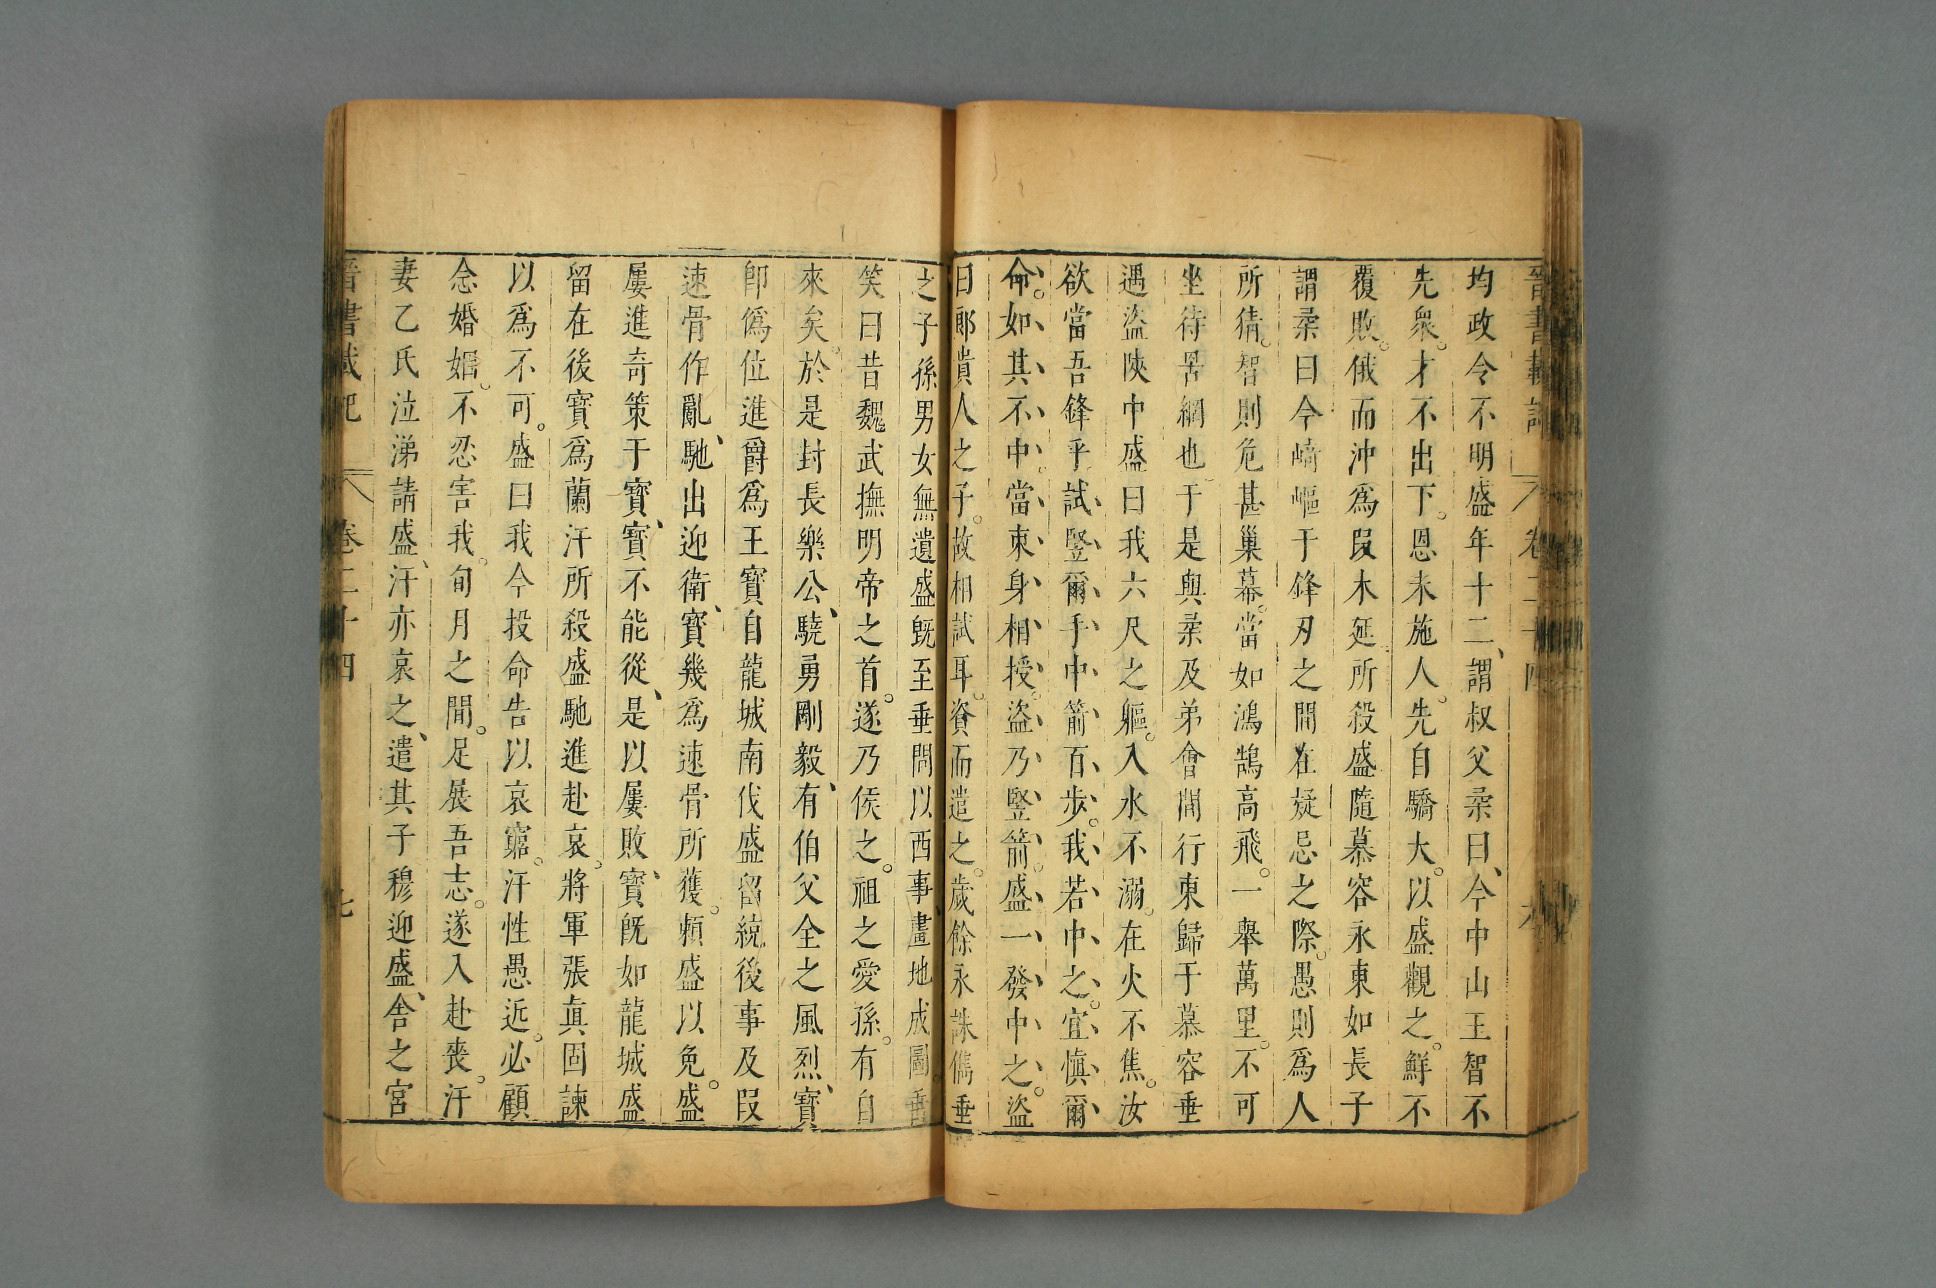 均政令不明盛年十二謂叔父柔曰今中山王智不
先衆才不出下恩未施人先自驕大以盛觀之鮮不
覆敗俄而沖爲段木延所殺盛隨慕容永東如長子
謂柔曰今崎嶇于鋒刃之間在疑忌之際愚則爲人
所猜智則危甚巢幕當如鴻鵠高飛一舉萬里不可
坐待罟網也于是與柔及弟會間行東歸于慕容垂
遇盜陝中盛曰我六尺之軀入水不溺在火不焦汝
欲當吾鋒乎試豎爾手中箭百步我若中之宜愼爾
命如其不中當束身相授盜乃豎箭盛一發中之盜
曰郞貴人之子故相試耳資而遣之歲餘永誅儁垂
之子孫男女無遺盛旣至垂問以西事畫地成圖垂
笑曰昔魏武撫明帝之首遂乃侯之祖之愛孫有自
來矣於是封長樂公驍勇剛毅有伯父全之風烈寶
卽僞位進爵爲王寶自龍城南伐盛留統後事及段
速骨作亂馳出迎衛寶幾爲速骨所獲賴盛以免盛
屢進奇策于寶寶不能從是以屢敗寶旣如龍城盛
留在後寶爲蘭汗所殺盛馳進赴哀將軍張眞固諫
以爲不可盛曰我今投命告以哀窮汗性愚近必顧
念婚姻不忍害我旬月之間足展吾志遂入赴喪汗
妻乙氏泣涕請盛汗亦哀之遣其子穆迎盛舍之宮
晉書載記 卷二十四 七